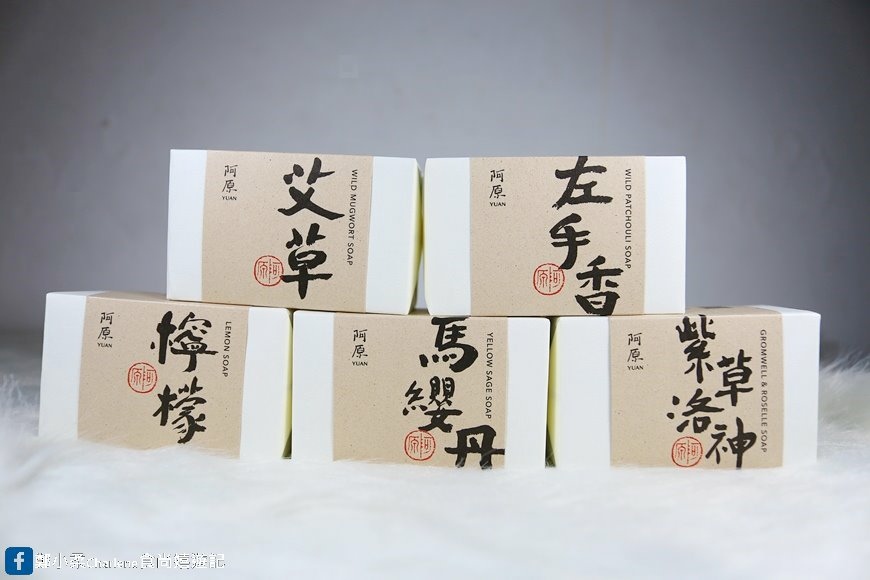 阿原
YUAN
艾草
WILD MUGWORT SOAP
阿原
阿原
YUAN
左手香
WILD PATCHOULI SOAP
阿原
阿原
YUAN
檸檬
LEMON SOAP
阿原
阿原
YUAN
馬纓丹
YELLOW SAGE SOAP
阿原
阿原
YUAN
紫草洛神
GROMWELL & ROSELLE SOAP
阿原
f 鄭小柔Charlene食尚嬉遊記